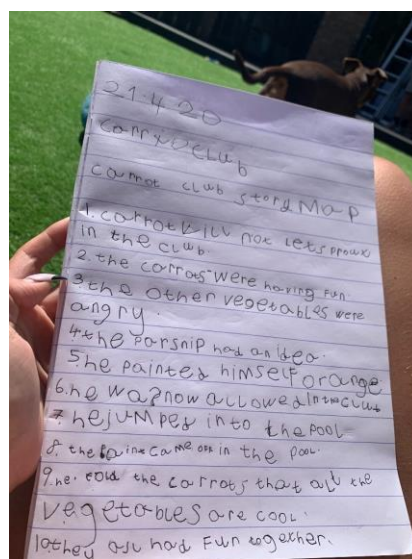 21.4.20
club
carrot club story Map
1. carrot will not let
in the club.
2. the carrots were having fun
3 the other vegetables were
angry.
4. the parsnip had an idea.
5. he painted himself orange
6. he was now allowed in the club
7. he jumped into the pool
8. the paint came off in the pool.
9. he. told the carrots that all the
vegetables are cool.
10 they all had fun together.